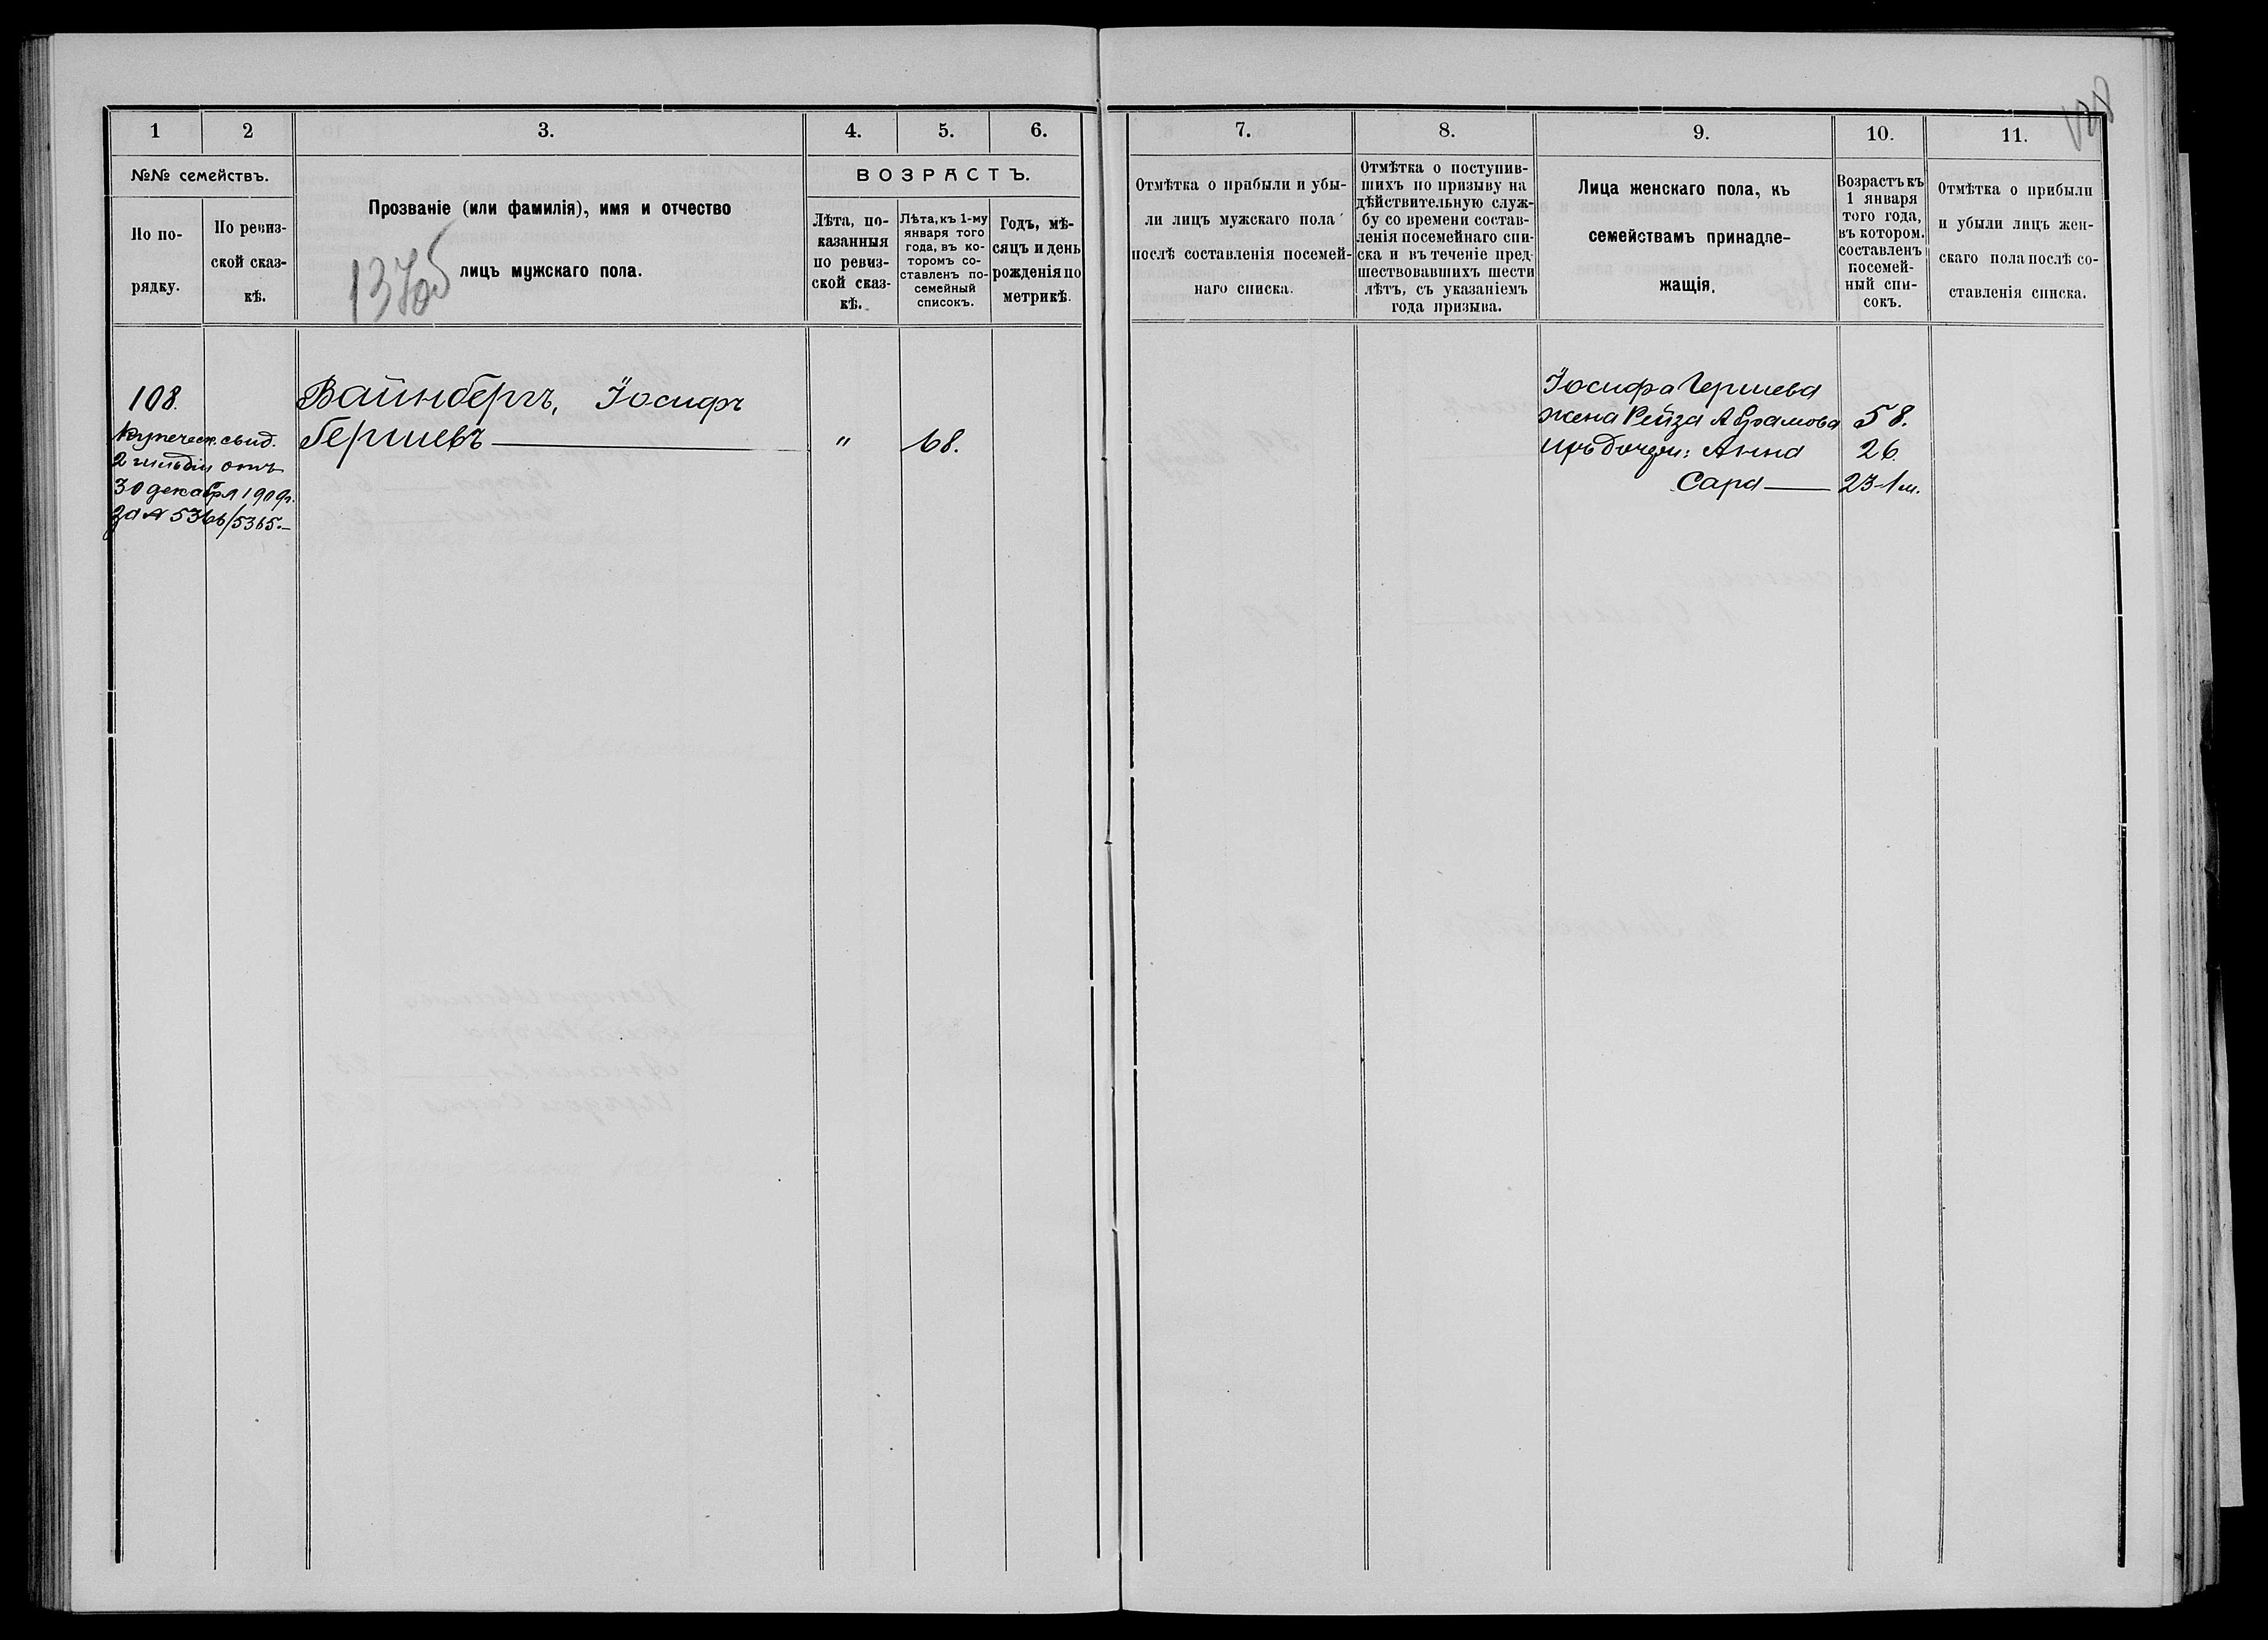 1
2
3.
4.
5.
6.
№№ семействъ.
По по-
рядку.
По ревиз-
ской сказ-
кѣ.
Прозваніе (или фамилія), имя и отчество
лицъ мужскаго пола.
ВОЗРАСТЪ.
Лѣта, по-
казанныя
по ревиз-
ской сказ-
кѣ.
Лѣта, къ 1-му
января того
года, въ ко-
торомъ со-
ставленъ по-
семейный
списокъ.
Годъ, мѣ-
сяцъ и день
рожденія по
метрикѣ.
108.
Купеческ. свид.
2 гильдіи отъ
30 декабря 1909г.
за № 5366/5365.—
Вайнбергъ, Іосифъ
Гершевъ
"
68.
7.
8.
9.
10.
11.
Отмѣтка о прибыли и убы-
ли лицъ мужскаго пола
послѣ составленія посемей-
наго списка.
Отмѣтка о поступив-
шихъ по призыву на
дѣйствительную служ-
бу со времени состав-
ленія посемейнаго спи-
ска и въ теченіе пред-
шествовавшихъ шести
лѣтъ, съ указаніемъ
года призыва.
Лица женскаго пола, къ
семействамъ принадле-
жащія.
Возрастъ къ
1 января
того года,
въ котором.
составленъ
посемей-
ный спи-
сокъ.
Отмѣтка о прибыли
и убыли лицъ жен-
скаго пола послѣ со-
ставленія списка.
Іосифа Гершева
жена Рейза Абрамова 58.
ихъ дочери: Анна 26.
Сара 23-1 м.